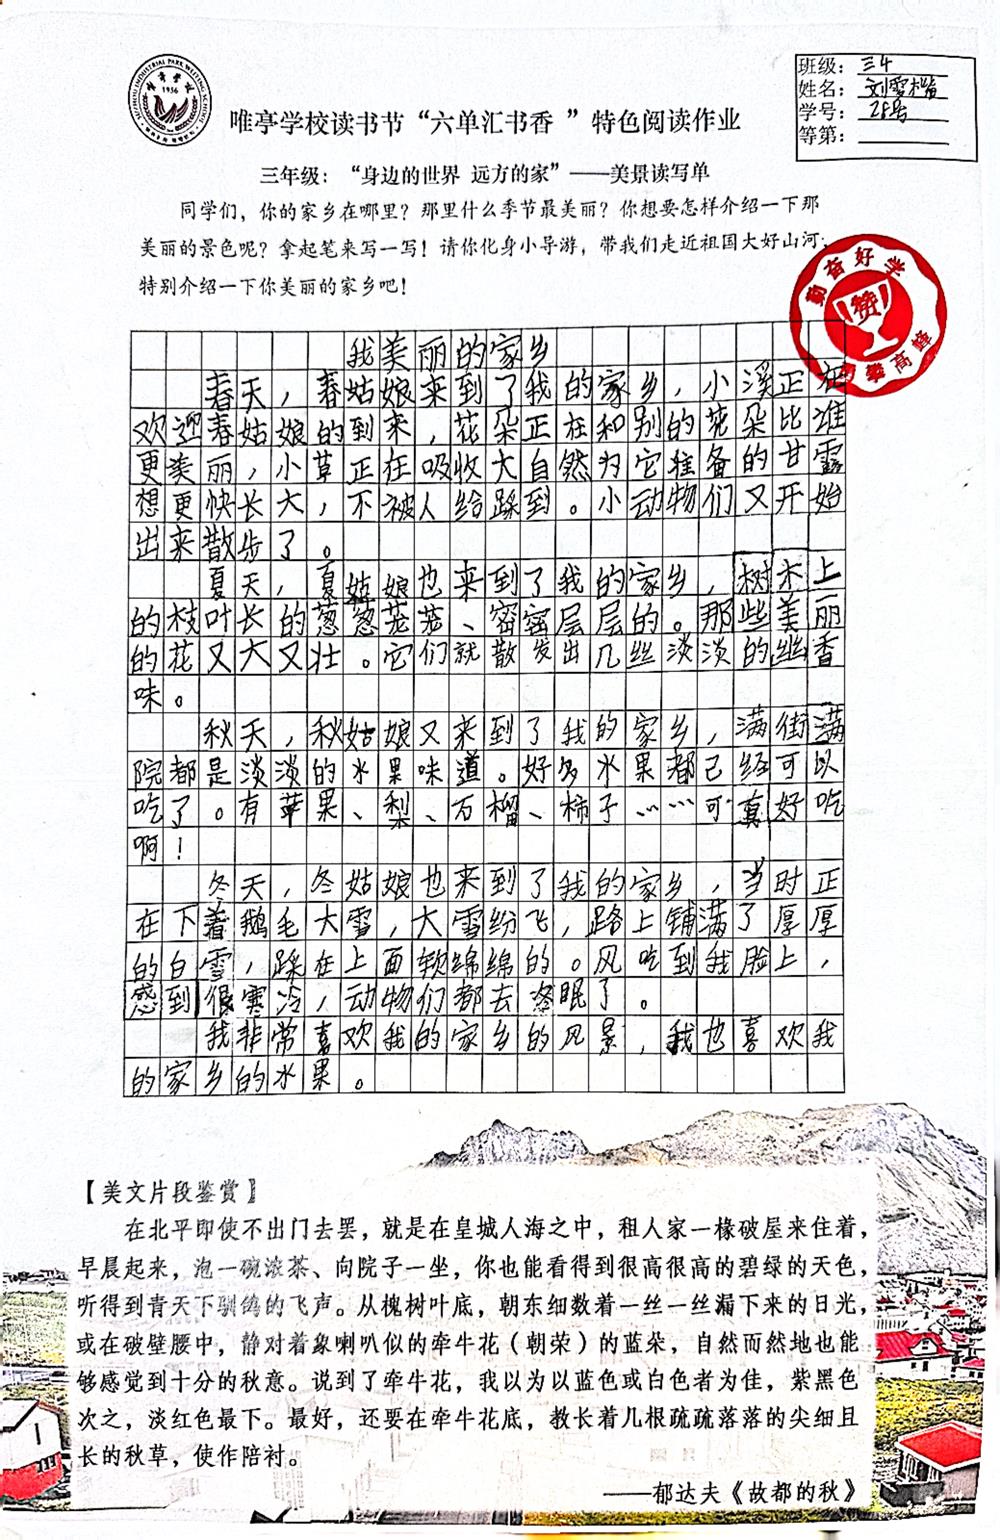 SUZHOU INDUSTRIAL PARK WEITING SCHOOL
1936
班级：三4
姓名：刘雯楷
学号：28号
等第：
唯亭学校读书节“六单汇书香 ”特色阅读作业
三年级：“身边的世界 远方的家”——美景读写单
同学们，你的家乡在哪里？那里什么季节最美丽？你想要怎样介绍一下那
美丽的景色呢？拿起笔来写一写！请你化身小导游，带我们走近祖国大好山河，
特别介绍一下你美丽的家乡吧！
勤奋好学
赞
攀高峰
我美丽的家乡
春天，春姑娘来到了我的家乡，小溪正在
欢迎春姑娘的到来，花朵正在和别的花朵比谁
更美丽，小草正在吸收大自然为它准备的甘露
想更快长大，不被人给踩到。小动物们又开始
出来散步了。
夏天，夏姑娘也来到了我的家乡，树木上
的枝叶长的葱葱茏茏、密密层层的。那些美丽
的花又大又壮。它们就散发出几丝淡淡的幽香
味。
秋天，秋姑娘又来到了我的家乡，满街满
院都是淡淡的水果味道。好多水果都已经可以
吃了。有苹果、梨、石榴、柿子……可真好吃
啊！
冬天，冬姑娘也来到了我的家乡，当时正
在下着鹅毛大雪，大雪纷飞，路上铺满了厚厚
的白雪，踩在上面软绵绵的。风吃到我脸上，
感到很寒冷，动物们都去冬眠了。
我非常喜欢我的家乡的风景，我也喜欢我
的家乡的水果。
【美文片段鉴赏】
在北平即使不出门去罢，就是在皇城人海之中，租人家一椽破屋来住着，
早晨起来，泡一碗浓茶、向院子一坐，你也能看得到很高很高的碧绿的天色，
听得到青天下驯鸽的飞声。从槐树叶底，朝东细数着一丝一丝漏下来的日光，
或在破壁腰中，静对着象喇叭似的牵牛花（朝荣）的蓝朵，自然而然地也能
够感觉到十分的秋意。说到了牵牛花，我以为以蓝色或白色者为佳，紫黑色
次之，淡红色最下。最好，还要在牵牛花底，教长着几根疏疏落落的尖细且
长的秋草，使作陪衬。
——郁达夫《故都的秋》